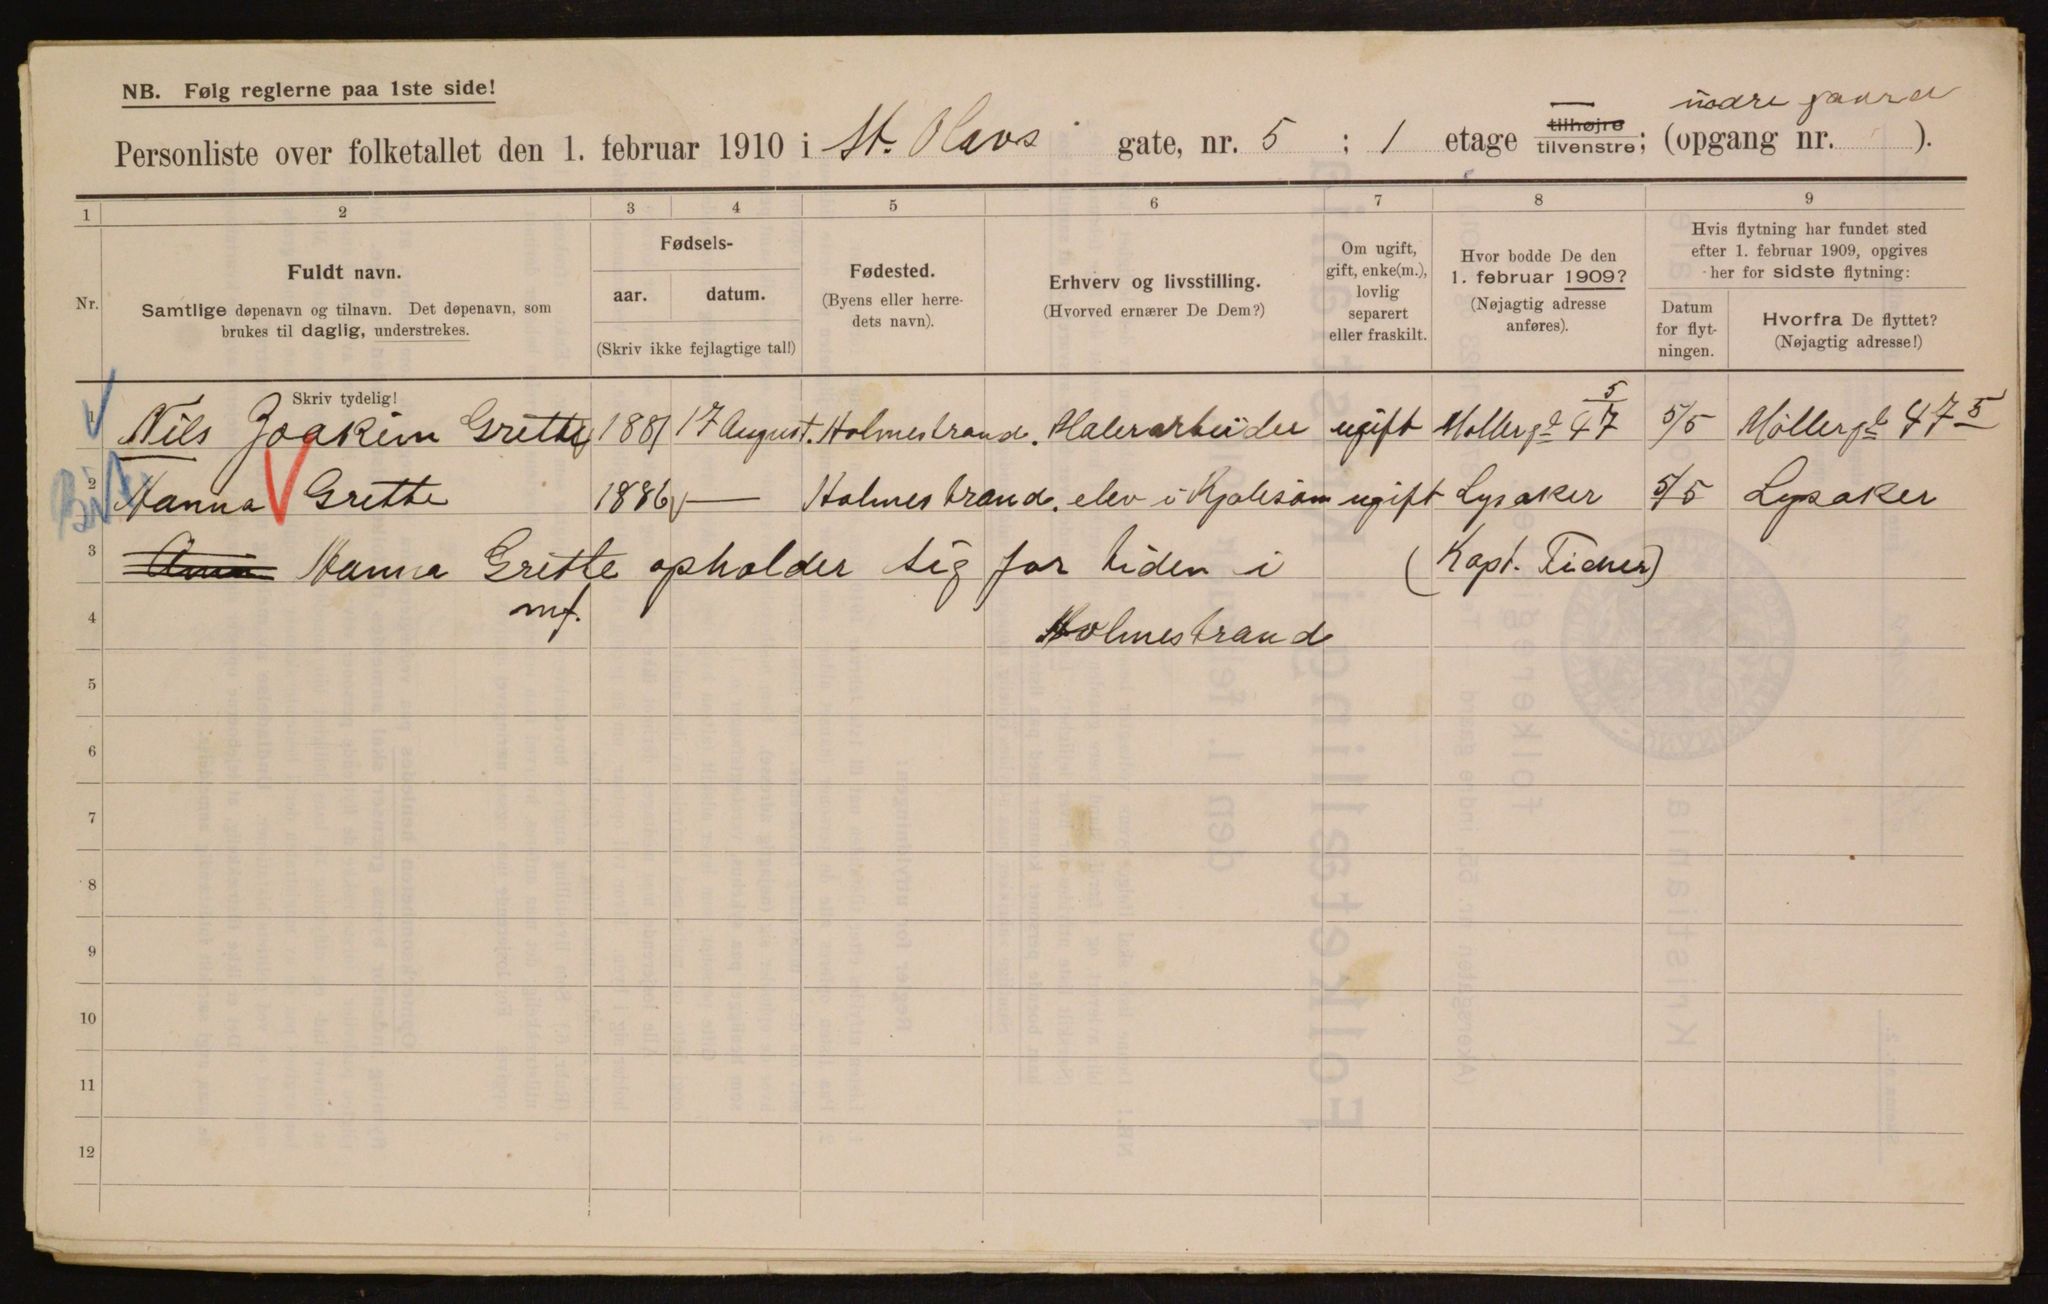 NB. Følg reglerne paa 1ste side!
indre gaard
Personliste over folketallet den 1. februar 1910 i St. Olavs gate, nr. 5 : 1 etage tilhøjre tilvenstre; (opgang nr. ).
1 2 3 4 5 6 7 8 9
Nr.
Fuldt navn.
Samtlige døpenavn og tilnavn. Det døpenavn, som
brukes til daglig, understrekes.
Fødsels-
aar. datum.
(Skriv ikke fejlagtige tal!)
Fødested.
(Byens eller herre-
dets navn).
Erhverv og livsstilling.
(Hvorved ernærer De Dem?)
Om ugift,
gift, enke(m.),
lovlig
separert
eller fraskilt.
Hvor bodde De den
1. februar 1909?
(Nøjagtig adresse
anføres).
Hvis flytning har fundet sted
efter 1. februar 1909, opgives
her for sidste flytning:
Datum
for flyt-
ningen.
Hvorfra De flyttet?
(Nøjagtig adresse!)
Skriv tydelig!
1 Nils Joakim Grette 1881 17 August. Holmestrand. Malerarbeider ugift Møllergd 47 5 5/5 Møllergd 47 5
2 Hanna Grette 1886 — Holmestrand. elev i Kjolesøm ugift Lysaker 5/5 Lysaker
3 Anna Hanna Grette opholder sig for tiden i (Kapt. Ticher)
4 mf. Holmestrand
5
6
7
8
9
10
11
12